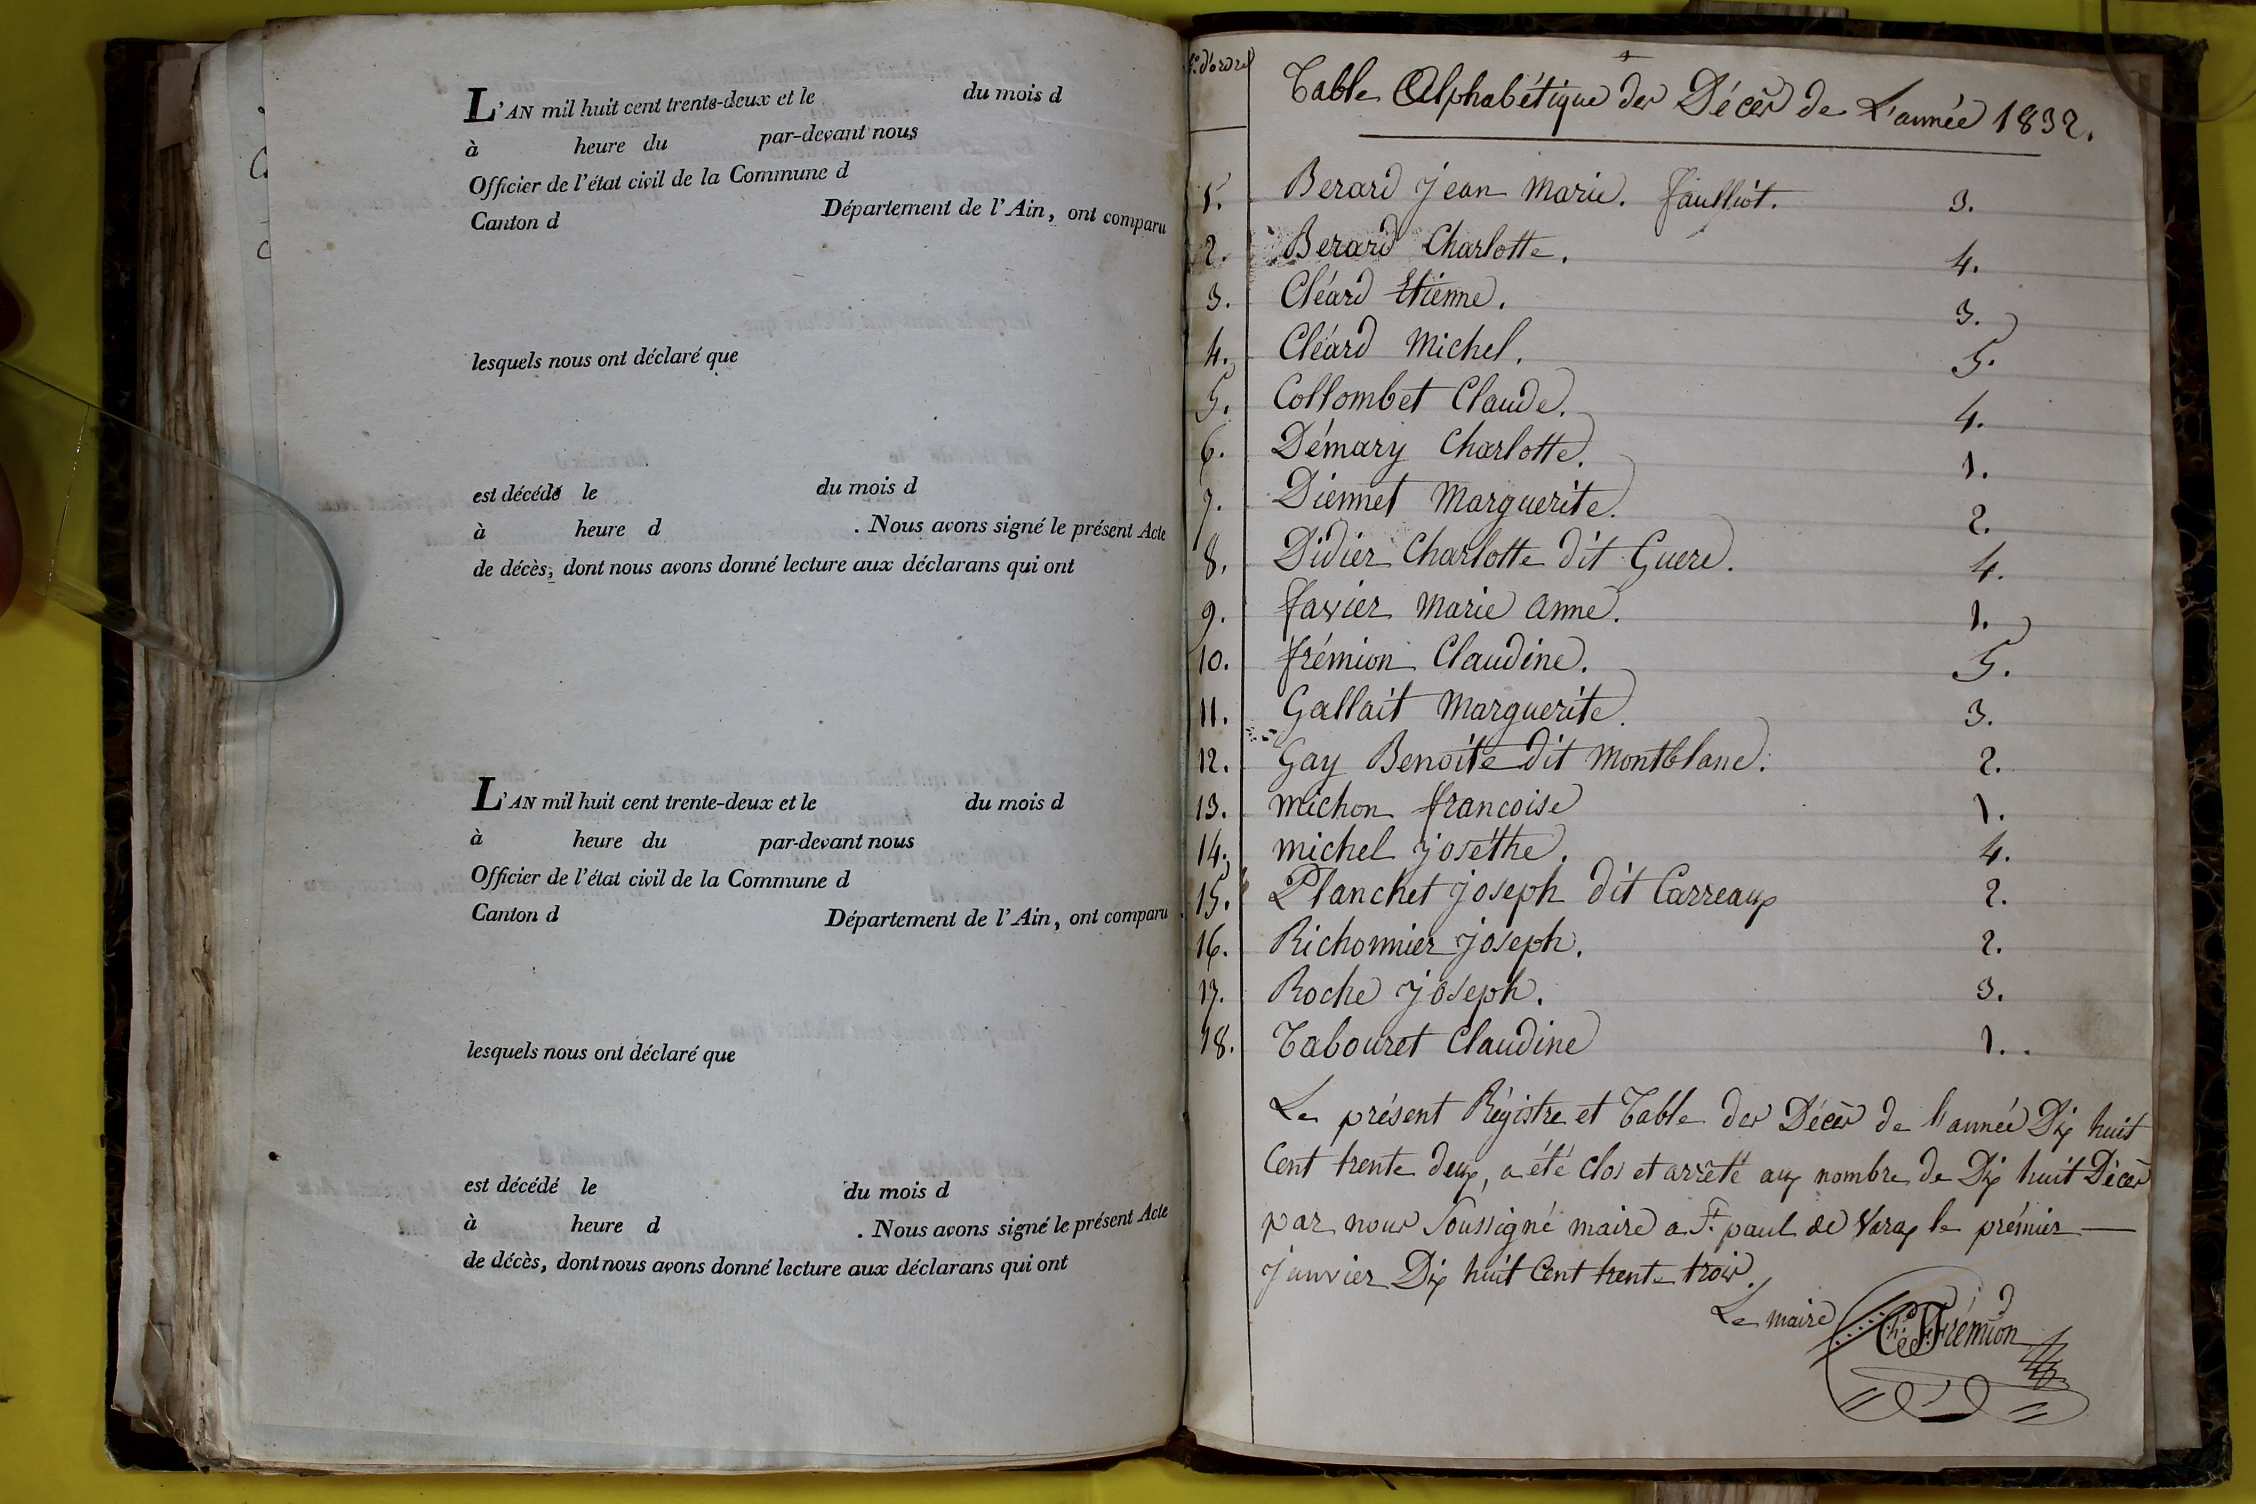 L'AN mil huit cent trente-deux et le du mois d
à heure du par-devant nous
Officier de l'état civil de la Commune d
Canton d Département de l'Ain, ont comparu
lesquels nous ont déclaré que
est décédé le du mois d
à heure d . Nous avons signé le présent Acte
de décès, dont nous avons donné lecture aux déclarans qui ont
L'AN mil huit cent trente-deux et le du mois d
à heure du par-devant nous
Officier de l'état civil de la Commune d
Canton d Département de l'Ain, ont comparu
lesquels nous ont déclaré que
est décédé le du mois d
à heure d . Nous avons signé le présent Acte
de décès, dont nous avons donné lecture aux déclarans qui ont
d'ordre
Table Alphabétique des Décès de L'année 1832.
1. Berard jean Marie. faulliot. 3.
2. Berard Charlotte. 4.
3. Cléard Etienne. 3.
4. Cléard Michel. 5.
5. Collombet Claude. 4.
6. Démary Charlotte. 1.
7. Diennet Marguerite. 2.
8. Didier Charlotte dit Guere. 4.
9. favier Marie anne. 1.
10. frémion Claudine. 5.
11. Gallait Marguerite. 3.
12. Gay Benoite dit Montblanc. 2.
13. michon francoise 1.
14. michel joséthe. 4.
15. Planchet joseph dit Carreaux 2.
16. Richonnier joseph. 2.
17. Roche joseph. 3.
18. Tabouret Claudine 1..
Le présent Régistre et Table des Décès de l'année Dix huit
Cent trente deux, a été clos et arrêté aux nombre de Dix huit Décès
par nous Soussigné maire a St. paul de Varax le prémier —
janvier Dix huit Cent trente trois.
Le maire
Frémion